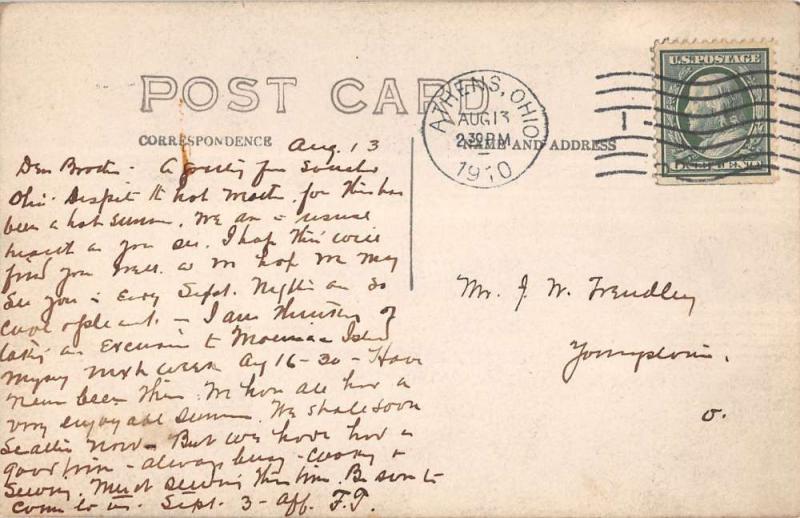 POST CARD
CORRESPONDENCE
NAME AND ADDRESS
ATHENS, OHIO
AUG 13
2 30 PM
1910
U.S. POSTAGE
ONE CENT
Aug. 13
Dear Brother - A greeting from
Ohio. Despite the hot weather, for this has
been a hot summer. We are in usual
as you see. I hope this will
find you well. as we hope we may
see you in early Sept. Nights are so
cool & pleasant. - I am thinking of
taking an Excursion to Island
next week Aug 16-30 - Have
never been there. We have all had a
very enjoyable summer. We shall soon
now - But we have had a
good time - always busy - &
Sewing. Much sewing this time. Be sure to
come to us. Sept. 3 - Aff. F.T.
Mr. J. W. Trendley
Youngstown.
O.